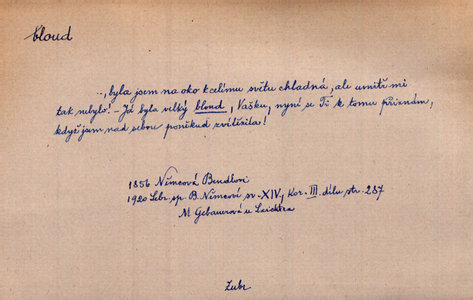 bloud
..., byla jsem na oko k celému světu chladná, ale uvnitř mi
tak nebylo! – Já byla velký bloud, Vašku, nyní se Ti k tomu přiznám,
když jsem nad sebou poněkud zvítězila!
1856 Němcová Bendlovi
1920 Sebr. sp. B. Němcové sv. XIV, Kor. III. dílu str. 287
M. Gebauerová u Laichtra
Zubr